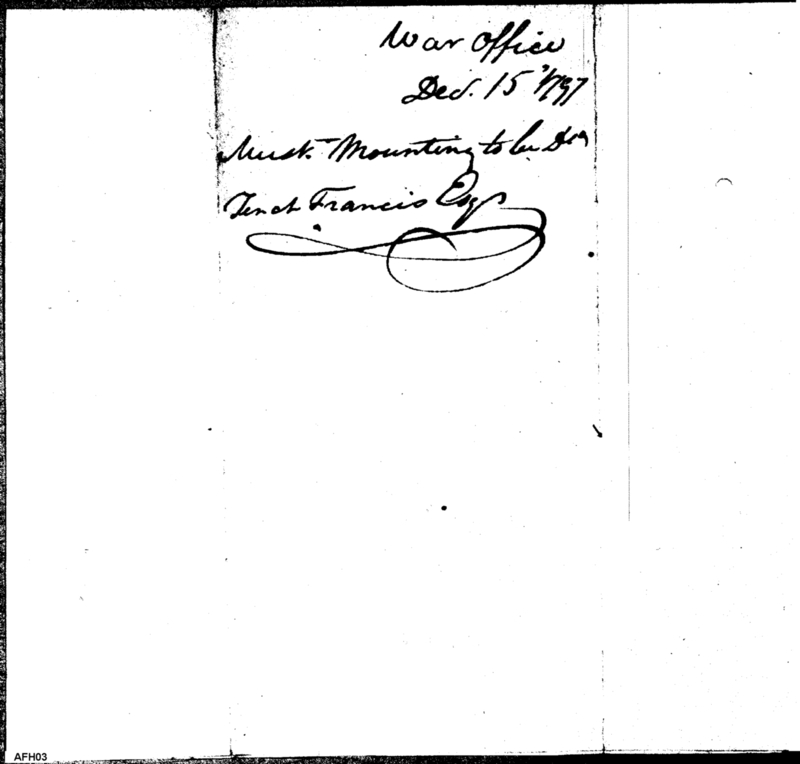 War Office
Decr. 15th 1797
Musk. Mounting to be
Tench Francis Esqr
AFH03